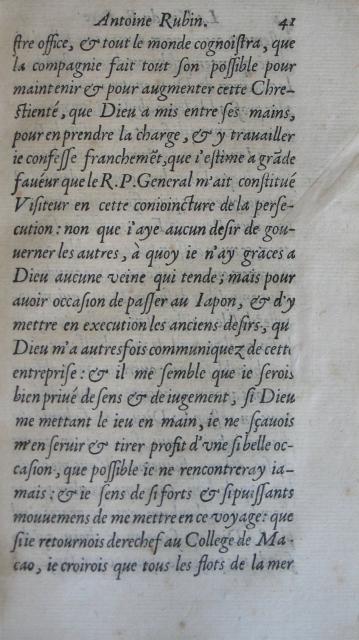 Antoine Rubin. 41
ſtre office, & tout le monde cognoiſtra, que
la compagnie fait tout ſon poſſible pour
maintenir & pour augmenter cette Chre-
ſtienté, que Dieu a mis entre ſes mains,
pour en prendre la charge, & y travailler
ie confeſſe franchemẽt, que i'eſtime a grãde
faueur que le R. P. General m'ait conſtitué
Viſiteur en cette conioincture de la perſe-
cution: non que i'aye aucun deſir de gou-
uerner les autres, à quoy ie n'ay graces a
Dieu aucune veine qui tende; mais pour
auoir occaſion de paſſer au Iapon, & d'y
mettre en execution les anciens deſirs, qu
Dieu m'a autresfois communiquez de cett
entrepriſe: & il me ſemble que ie ſerois
bien priué de ſens & de iugement, ſi Dieu
me mettant le ieu en main, ie ne ſçauois
m'en ſeruir & tirer profit d'vne ſi belle oc-
caſion, que poſſible ie ne rencontreray ia-
mais: & ie ſens de ſi forts & ſi puiſſants
mouuemens de me mettre en ce voyage: que
ſi ie retournois derechef au College de Ma-
cao, ie croirois que tous les flots de la mer